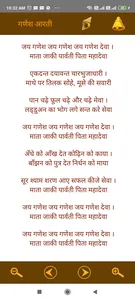 10:32 AM
गणेश आरती
जय गणेश जय गणेश जय गणेश देवा ।
माता जाकी पार्वती पिता महादेवा
एकदन्त दयावन्त चारभुजाधारी ।
माथे पर तिलक सोहे, मूसे की सवारी
पान चढ़े फूल चढ़े और चढ़े मेवा ।
लड्डुअन का भोग लगे सन्त करे सेवा
जय गणेश जय गणेश जय गणेश देवा ।
माता जाकी पार्वती पिता महादेवा
अँधे को आँख देत कोढ़िन को काया ।
बाँझन को पुत्र देत निर्धन को माया
सूर श्याम शरण आए सफल कीजे सेवा ।
माता जाकी पार्वती पिता महादेवा
जय गणेश जय गणेश जय गणेश देवा ।
माता जाकी पार्वती पिता महादेवा